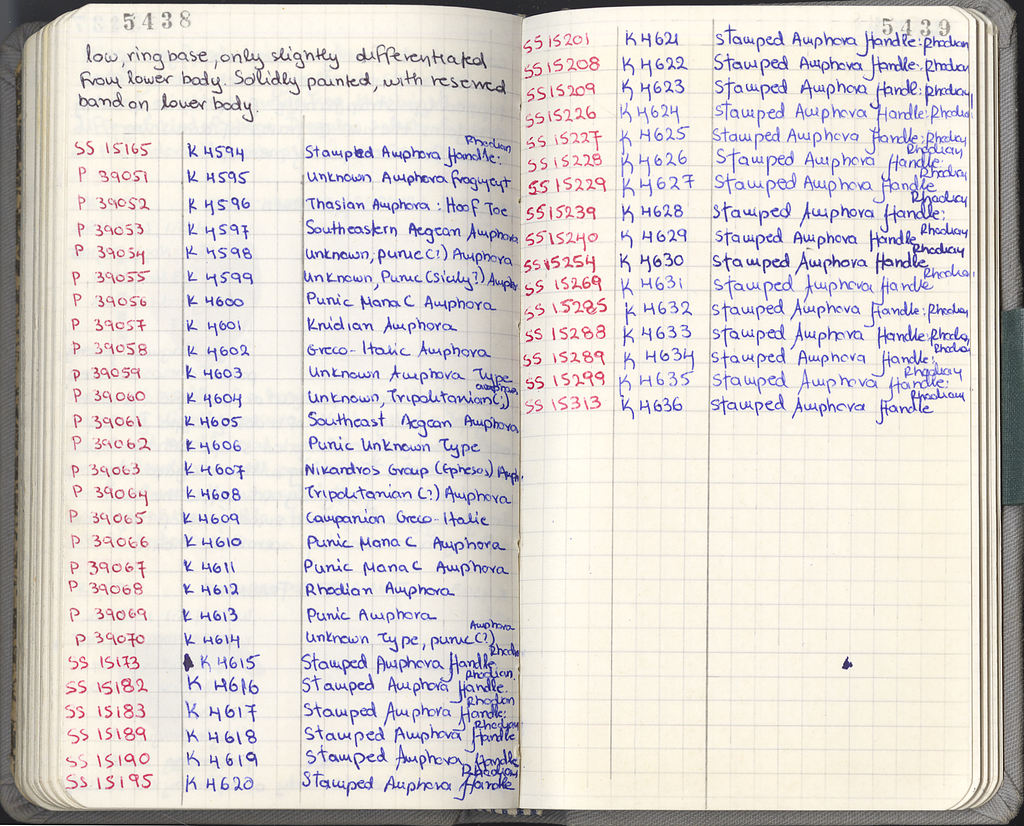 5438
low, ring base, only slightly differentiated
from lower body. Solidly painted, with reserved
band on lower body.
SS 15165 K 4594 Stamped Amphora Handle: Rhodian
P 39051 K 4595 Unknown Amphora fragment
P 39052 K 4596 Thasian Amphora: Hoof Toe
P 39053 K 4597 Southeastern Aegean Amphora
P 39054 K 4598 Unknown, punic (?) Amphora
P 39055 K 4599 Unknown, Punic (Sicily?) Amphor
P 39056 K 4600 Punic Mana C Amphora
P 39057 K 4601 Knidian Amphora
P 39058 K 4602 Greco-Italic Amphora
P 39059 K 4603 Unknown Amphora Type
P 39060 K 4604 Unknown, Tripolitanian (?) amphora
P 39061 K 4605 Southeast Aegean Amphora
P 39062 K 4606 Punic Unknown Type
P 39063 K 4607 Nikandros Group (Ephesos) Amph.
P 39064 K 4608 Tripolitanian (?) Amphora
P 39065 K 4609 Campanian Greco-Italic
P 39066 K 4610 Punic Mana C Amphora
P 39067 K 4611 Punic Mana C Amphora
P 39068 K 4612 Rhodian Amphora
P 39069 K 4613 Punic Amphora
P 39070 K 4614 Unknown Type, punic (?) Amphora
SS 15173 K 4615 Stamped Amphora Handle Rhodian
SS 15182 K 4616 Stamped Amphora Handle. Rhodian
SS 15183 K 4617 Stamped Amphora Handle: Rhodian
SS 15189 K 4618 Stamped Amphora Handle Rhodian
SS 15190 K 4619 Stamped Amphora Handle
SS 15195 K 4620 Stamped Amphora Handle Rhodian
5439
SS 15201 K 4621 Stamped Amphora Handle: Rhodian
SS 15208 K 4622 Stamped Amphora Handle: Rhodian
SS 15209 K 4623 Stamped Amphora Handle: Rhodian
SS 15226 K 4624 Stamped Amphora Handle: Rhodian
SS 15227 K 4625 Stamped Amphora Handle: Rhodian
SS 15228 K 4626 Stamped Amphora Handle: Rhodian
SS 15229 K 4627 Stamped Amphora Handle Rhodian
SS 15239 K 4628 Stamped Amphora Handle: Rhodian
SS 15240 K 4629 Stamped Amphora Handle Rhodian
SS 15254 K 4630 Stamped Amphora Handle Rhodian
SS 15269 K 4631 Stamped Amphora Handle Rhodian
SS 15285 K 4632 Stamped Amphora Handle: Rhodian
SS 15288 K 4633 Stamped Amphora Handle: Rhodian
SS 15289 K 4634 Stamped Amphora Handle: Rhodian
SS 15299 K 4635 Stamped Amphora Handle: Rhodian
SS 15313 K 4636 Stamped Amphora Handle Rhodian